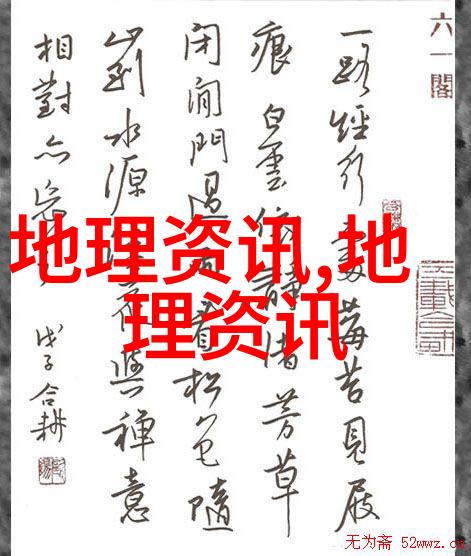 六一阁
一路经行处莓苔见屐
痕白云依静渚芳草
闭闲门过雨看松色随
山到水源溪花与禅意
相對亦忘言
戊子合耕
地理资讯,地
理资讯
无为斋 52wwz.c